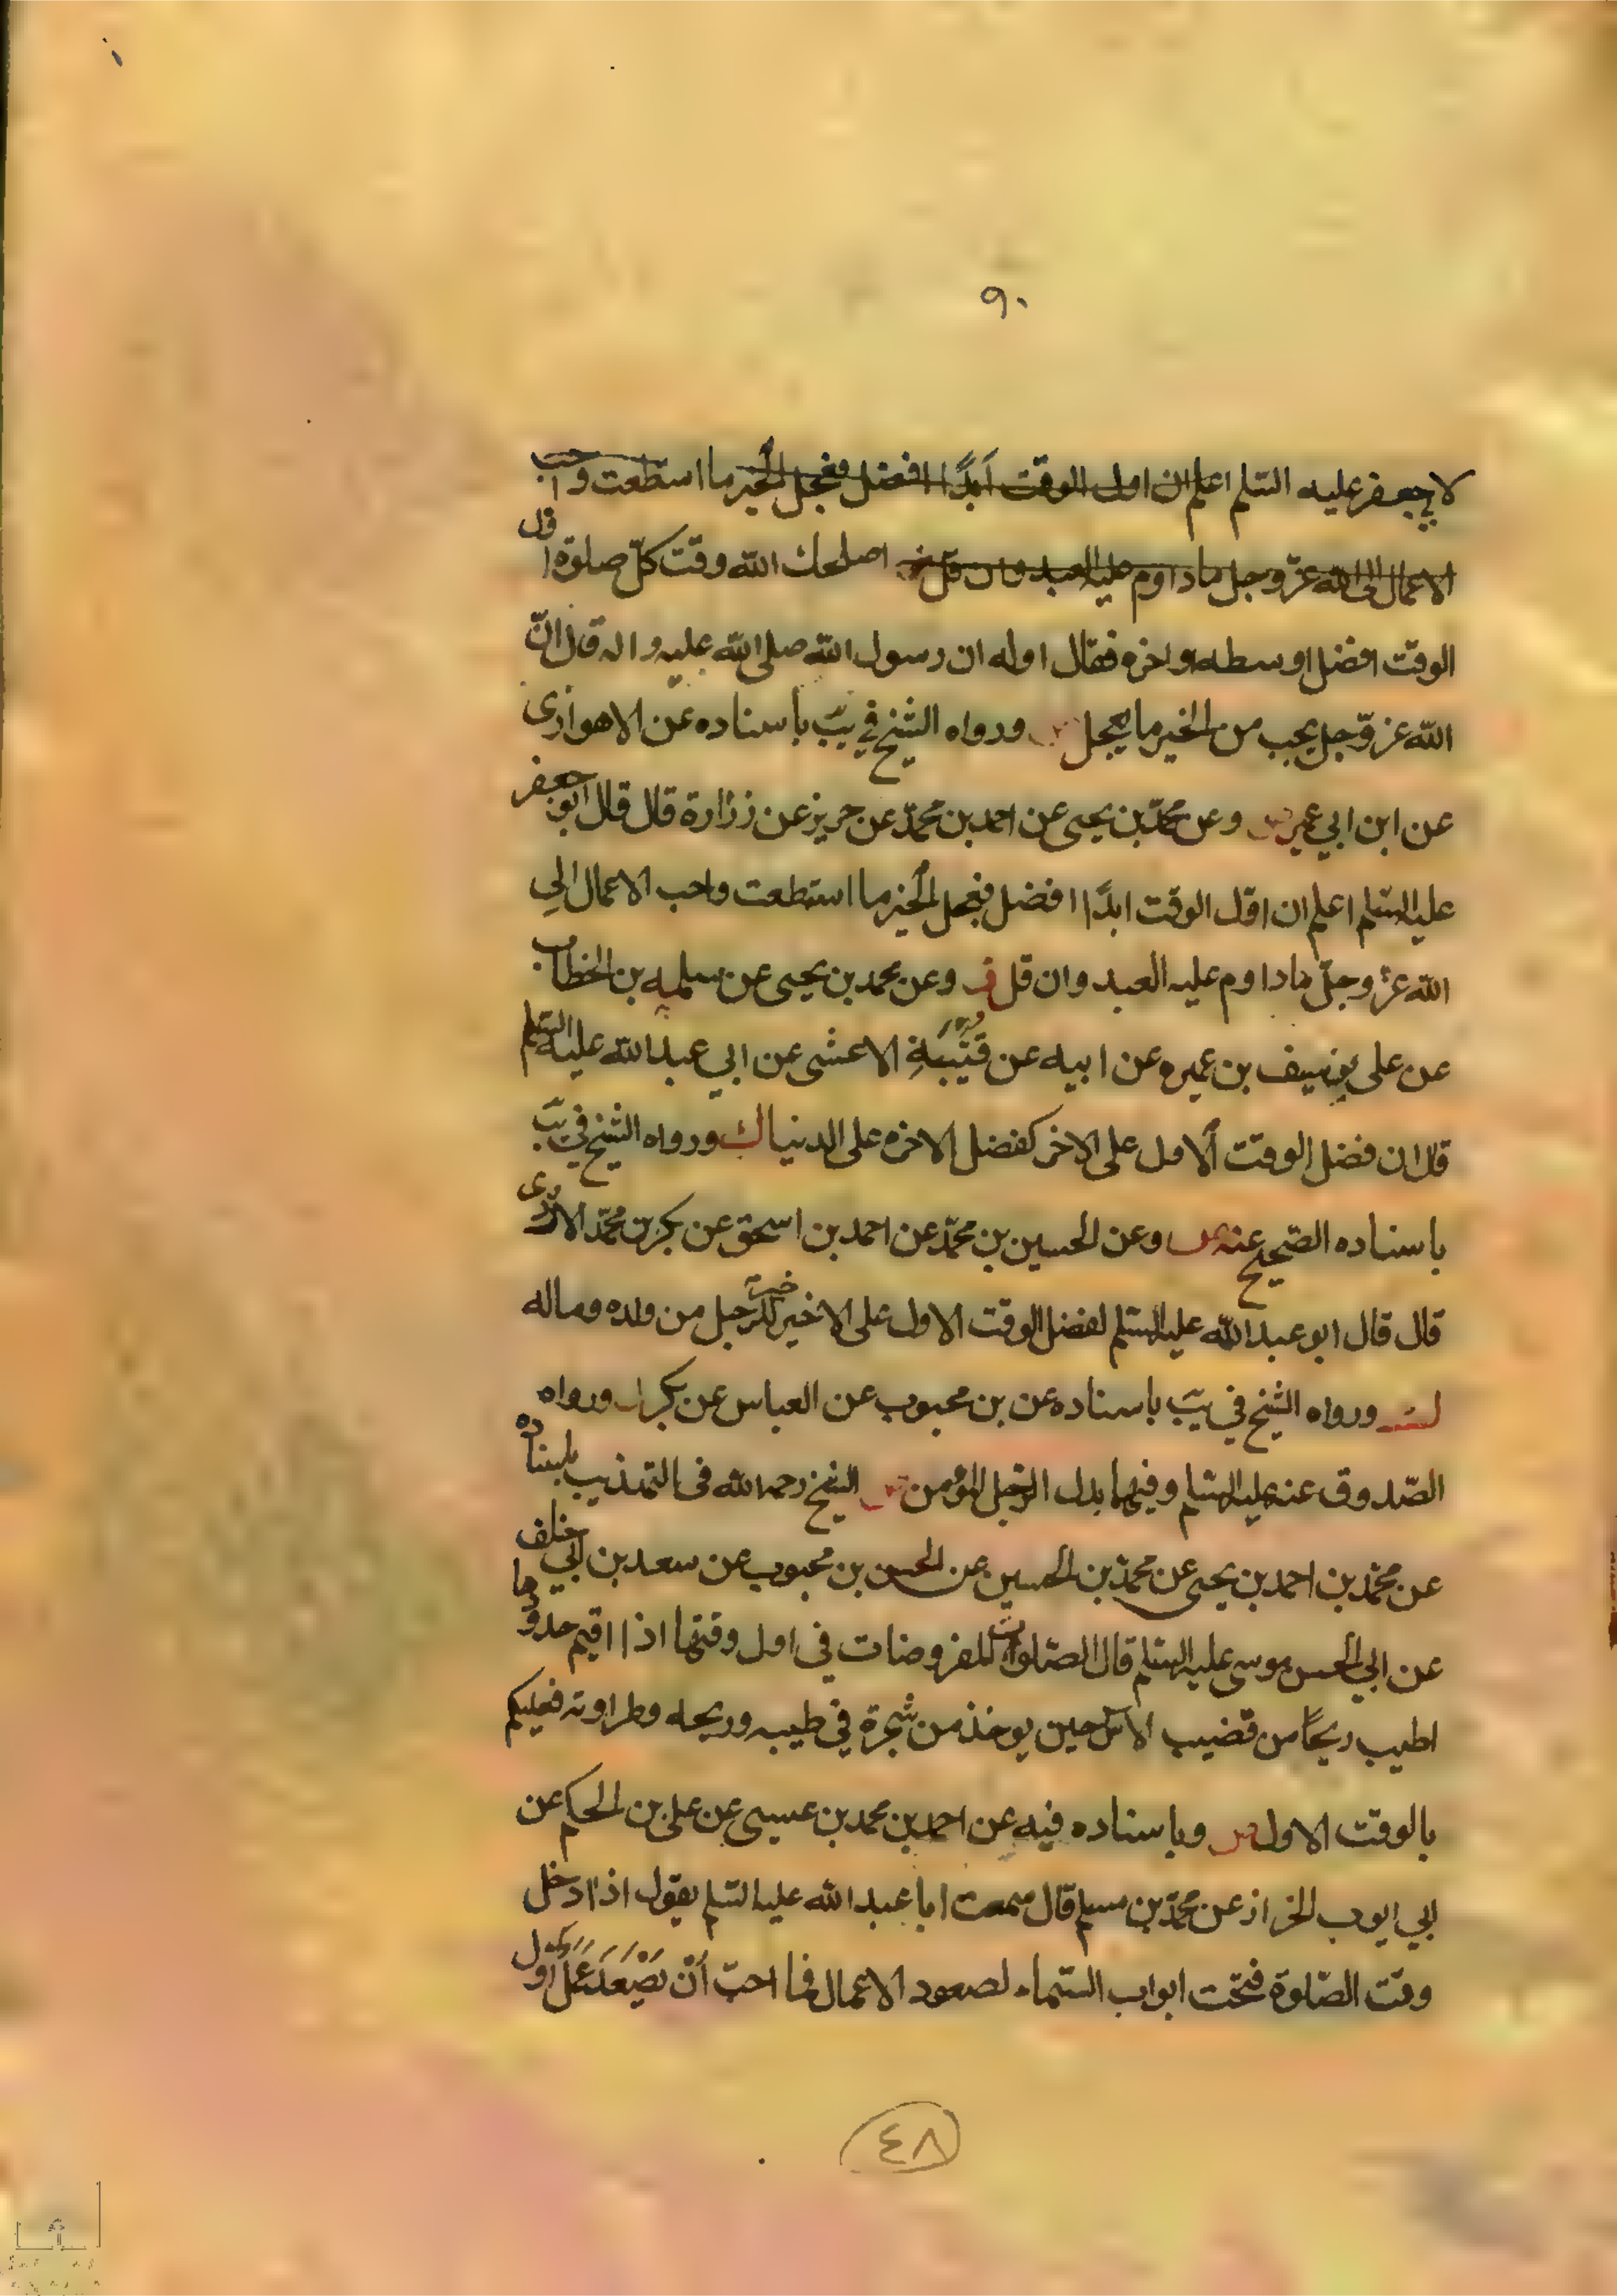 ٩٠
لابي جعفر عليه السلم اعلم ان اول الوقت ابدًا افضل فعجل الخير ما استطعت واحب
الاعمال الى الله عزّ وجل ما داوم عليه العبد وان قل اصلحك الله وقت كلّ صلوة اول
الوقت افضل اوسطه او اخره فقال اوله ان رسول الله صلى الله عليه واله قال انّ
الله عز وجل يحب من الخير ما يعجل ورواه الشيخ في يبّ باسناده عن الاهوازى
عن ابن ابي عمير وعن محمّد بن يحيى عن احمد بن محمّد عن حريز عن زرارة قال قال ابو جعفر
عليه السلم اعلم ان اول الوقت ابدًا افضل فعجل الخير ما استطعت واحب الاعمال الي
الله عزّ وجلّ ما داوم عليه العبد وان قل وعن محمد بن يحيى عن سلمه بن الخطاب
عن على بن سيف بن عميره عن ابيه عن قُتَيْبَةِ الاعشى عن ابي عبد الله عليه السلم
قال ان فضل الوقت الاول على الاخر كفضل الاخره على الدنيا ورواه الشيخ في يبّ
باسناده الصّحيح عنه وعن الحسين بن محمّد عن احمد بن اسحق عن بكر بن محمّد الازدى
قال قال ابو عبد الله عليه السلم لفضل الوقت الاول على الاخير خير للرجل من ولده وماله
ورواه الشيخ في يبّ باسناده عن بن محبوب عن العباس عن بكر ورواه
الصّدوق عنه عليه السلم وفيهما بدل الرجل المؤمن الشيخ رحمه الله فى التهذيب باسناده
عن محمّد بن احمد بن يحيى عن محمّد بن الحسين عن الحسن بن محبوب عن سعد بن ابي خلف
عن ابي الحسن موسى عليه السلم قال الصّلوات المفروضات في اول وقتها اذا اقيم حدودها
اطيب ريحًا من قضيب الاس حين يوخذ من شجرة في طيبه وريحه وطراوته فعليكم
بالوقت الاول وباسناده فيه عن احمد بن محمد بن عيسى عن على بن الحكم عن
ابي ايوب الخراز عن محمّد بن مسلم قال سمعت ابا عبد الله عليه السلم يقول اذا دخل
وقت الصّلوة فتحت ابواب السّماء لصعود الاعمال فما احبّ اَنْ يَصْعَدَ عَمَلٌ اَوّل
٤٨